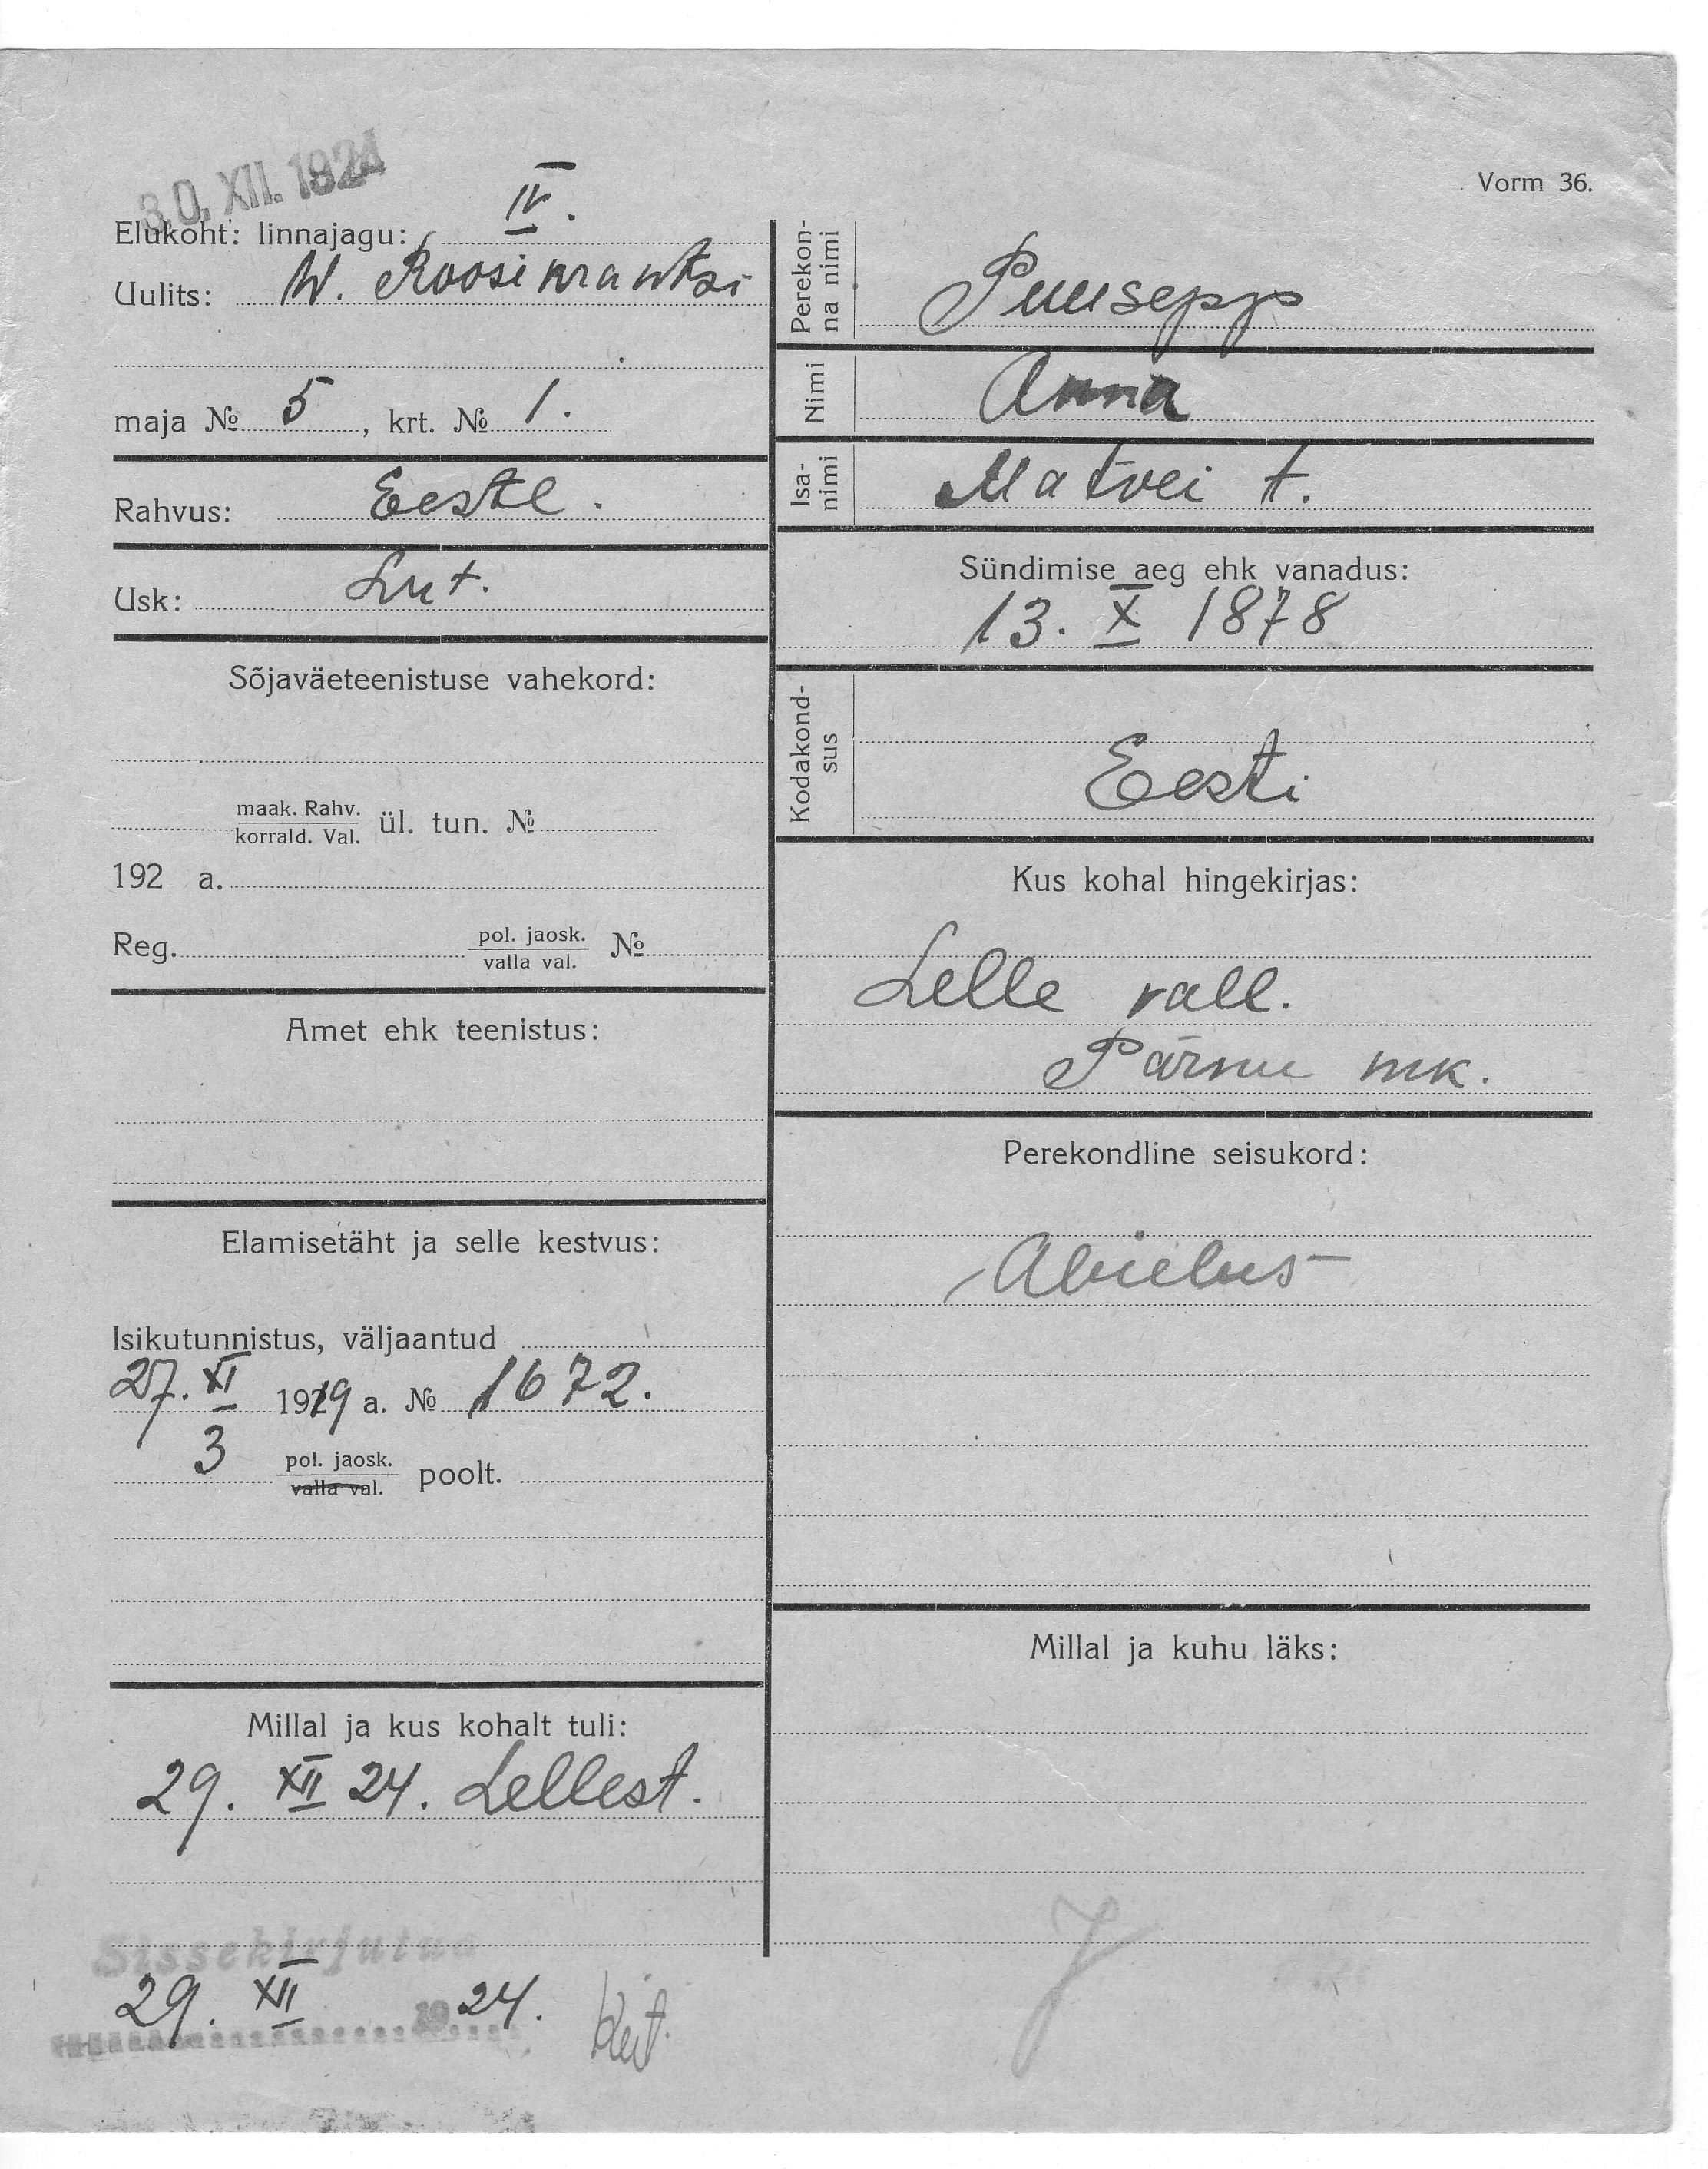 30. XII. 1924
Vorm 36.
Elukoht: linnajagu: IV.
Uulits: W. Roosikrantsi
maja № 5, krt. № 1.
Rahvus: Eestl.
Usk: Lut.
Sõjaväeteenistuse vahekord:
maak. Rahv.
korrald. Val.
ül. tun. №
192 a.
Reg. pol. jaosk. №
valla val.
Amet ehk teenistus:
Elamisetäht ja selle kestvus:
Isikutunnistus, väljaantud
27. XI 1919 a. № 1672.
3 pol. jaosk. poolt.
valla val.
Millal ja kus kohalt tuli:
29. XII 24. Lellest.
Sissekirjutud
29. XII 1924.
Perekon-
na nimi
Puusepp
Nimi
Anna
Isa-
nimi
Matvei t.
Sündimise aeg ehk vanadus:
13. X 1878
Kodakond-
sus
Eesti
Kus kohal hingekirjas:
Lelle vall.
Pärnu mk.
Perekondline seisukord:
Abielus
Millal ja kuhu läks: